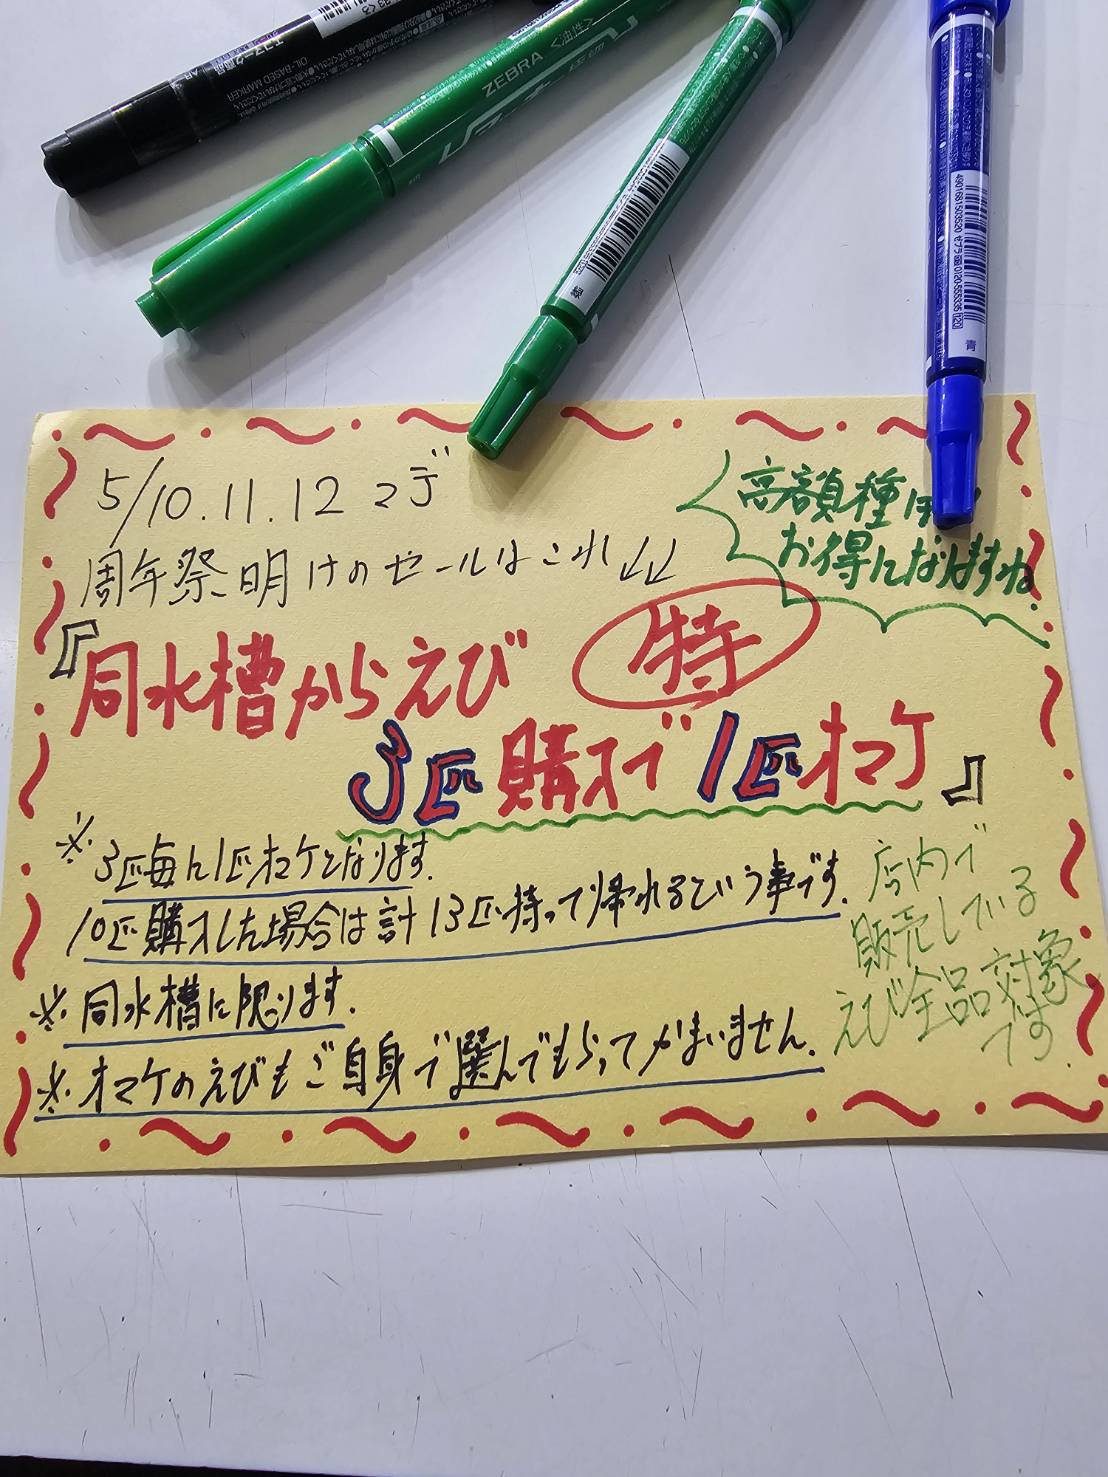 OIL-BASED MARKER
ZEBRA
〈油性〉
4901681503520
青
5/10.11.12 マデ
周年祭明けのセールはこれ↓↓
高額種ほど
お得になりますね。
『同水槽からえび
特
3匹購入で1匹オマケ』
※3匹毎に1匹オマケとなります。
10匹購入した場合は計13匹持って帰れるという事です。
※同水槽に限ります。
※オマケのえびもご自身で選んでもらってかまいません。
店内で
販売している
えび全品対象
です。